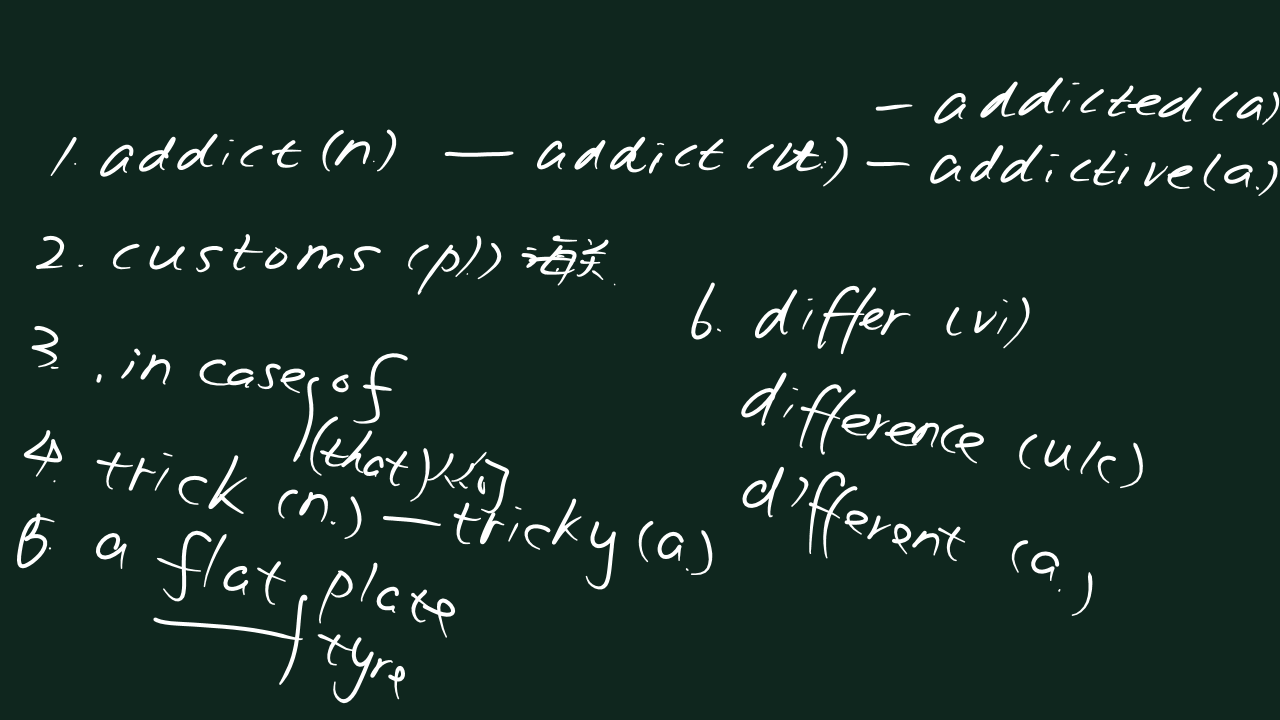 - addicted (a)
1. addict (n.) — addict (vt.) — addictive (a.)
2. customs (pl) 海关.
3. in case of
(that) 从句
4. trick (n.) — tricky (a.)
5. a flat plate
tyre
6. differ (vi)
difference (u/c)
different (a.)